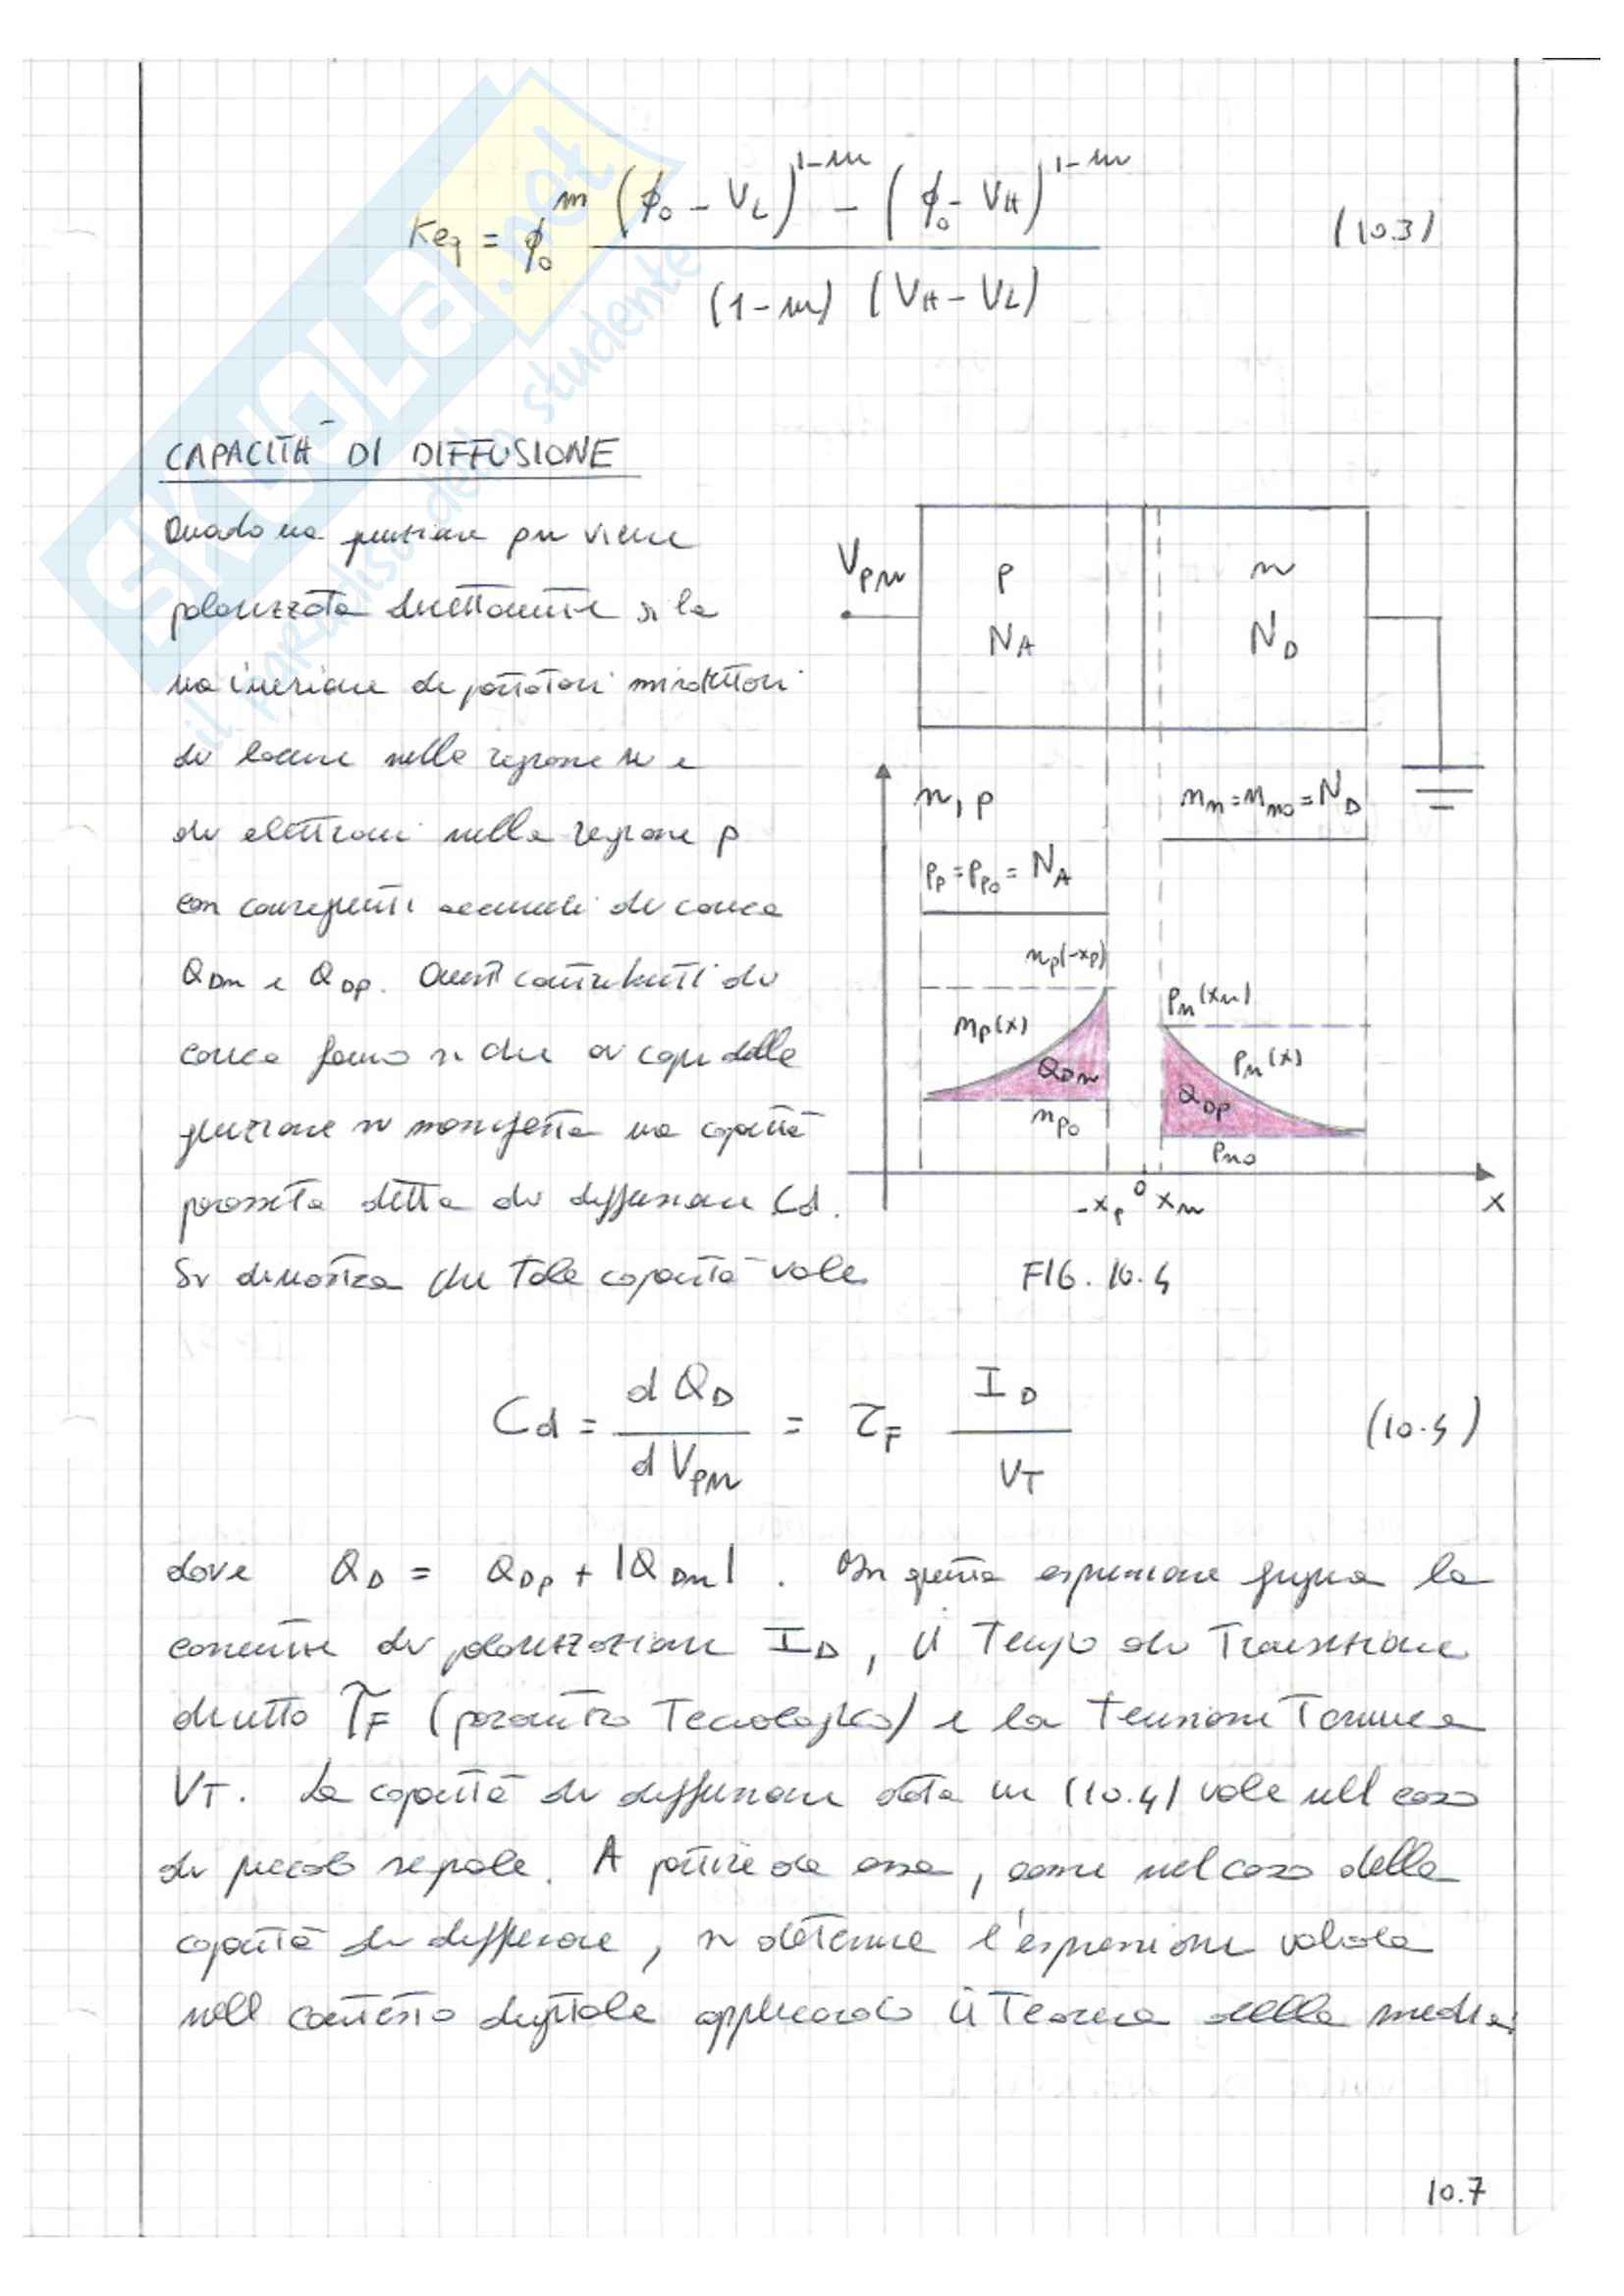 Keq = ϕ₀^m ((ϕ₀ - V_L)^(1-m) - (ϕ₀ - V_H)^(1-m)) / ((1-m) (V_H - V_L)) (10.3)
CAPACITÀ DI DIFFUSIONE
Quado una giunzione pn viene
polarizzata direttamente si ha
una iniezione di portatori minoritari
di lacune nella regione n e
di elettroni nella regione p
con conseguenti accumuli di carica
Q_Dn e Q_Dp. Questi contributi di
carica fanno si che ai capi della
giunzione si manifesta una capacità
parassita detta di diffusione Cd.
Si dimostra che tale capacità vale
V_PN
p
N_A
n
N_D
n, p
n_n = n_n0 = N_D
p_p = p_p0 = N_A
n_p(-x_p)
p_n(x_n)
n_p(x)
p_n(x)
Q_Dn
Q_Dp
n_p0
p_n0
-x_p 0 x_n x
FIG. 10.4
Cd = dQ_D / dV_PN = τ_F I_D / V_T (10.4)
dove Q_D = Q_Dp + |Q_Dn| . In questa espressione figura la
corrente di polarizzazione I_D, il tempo di transizione
diretto τ_F (parametro tecnologico) e la tensione termica
V_T. La capacità di diffusione data in (10.4) vale nell caso
di piccolo segnale. A partire da essa, come nel caso della
capacità di diffusione, si determina l'espressione valida
nell contesto digitale applicando il teorema della media
10.7
SKUOLA.net
il paradiso dello studente